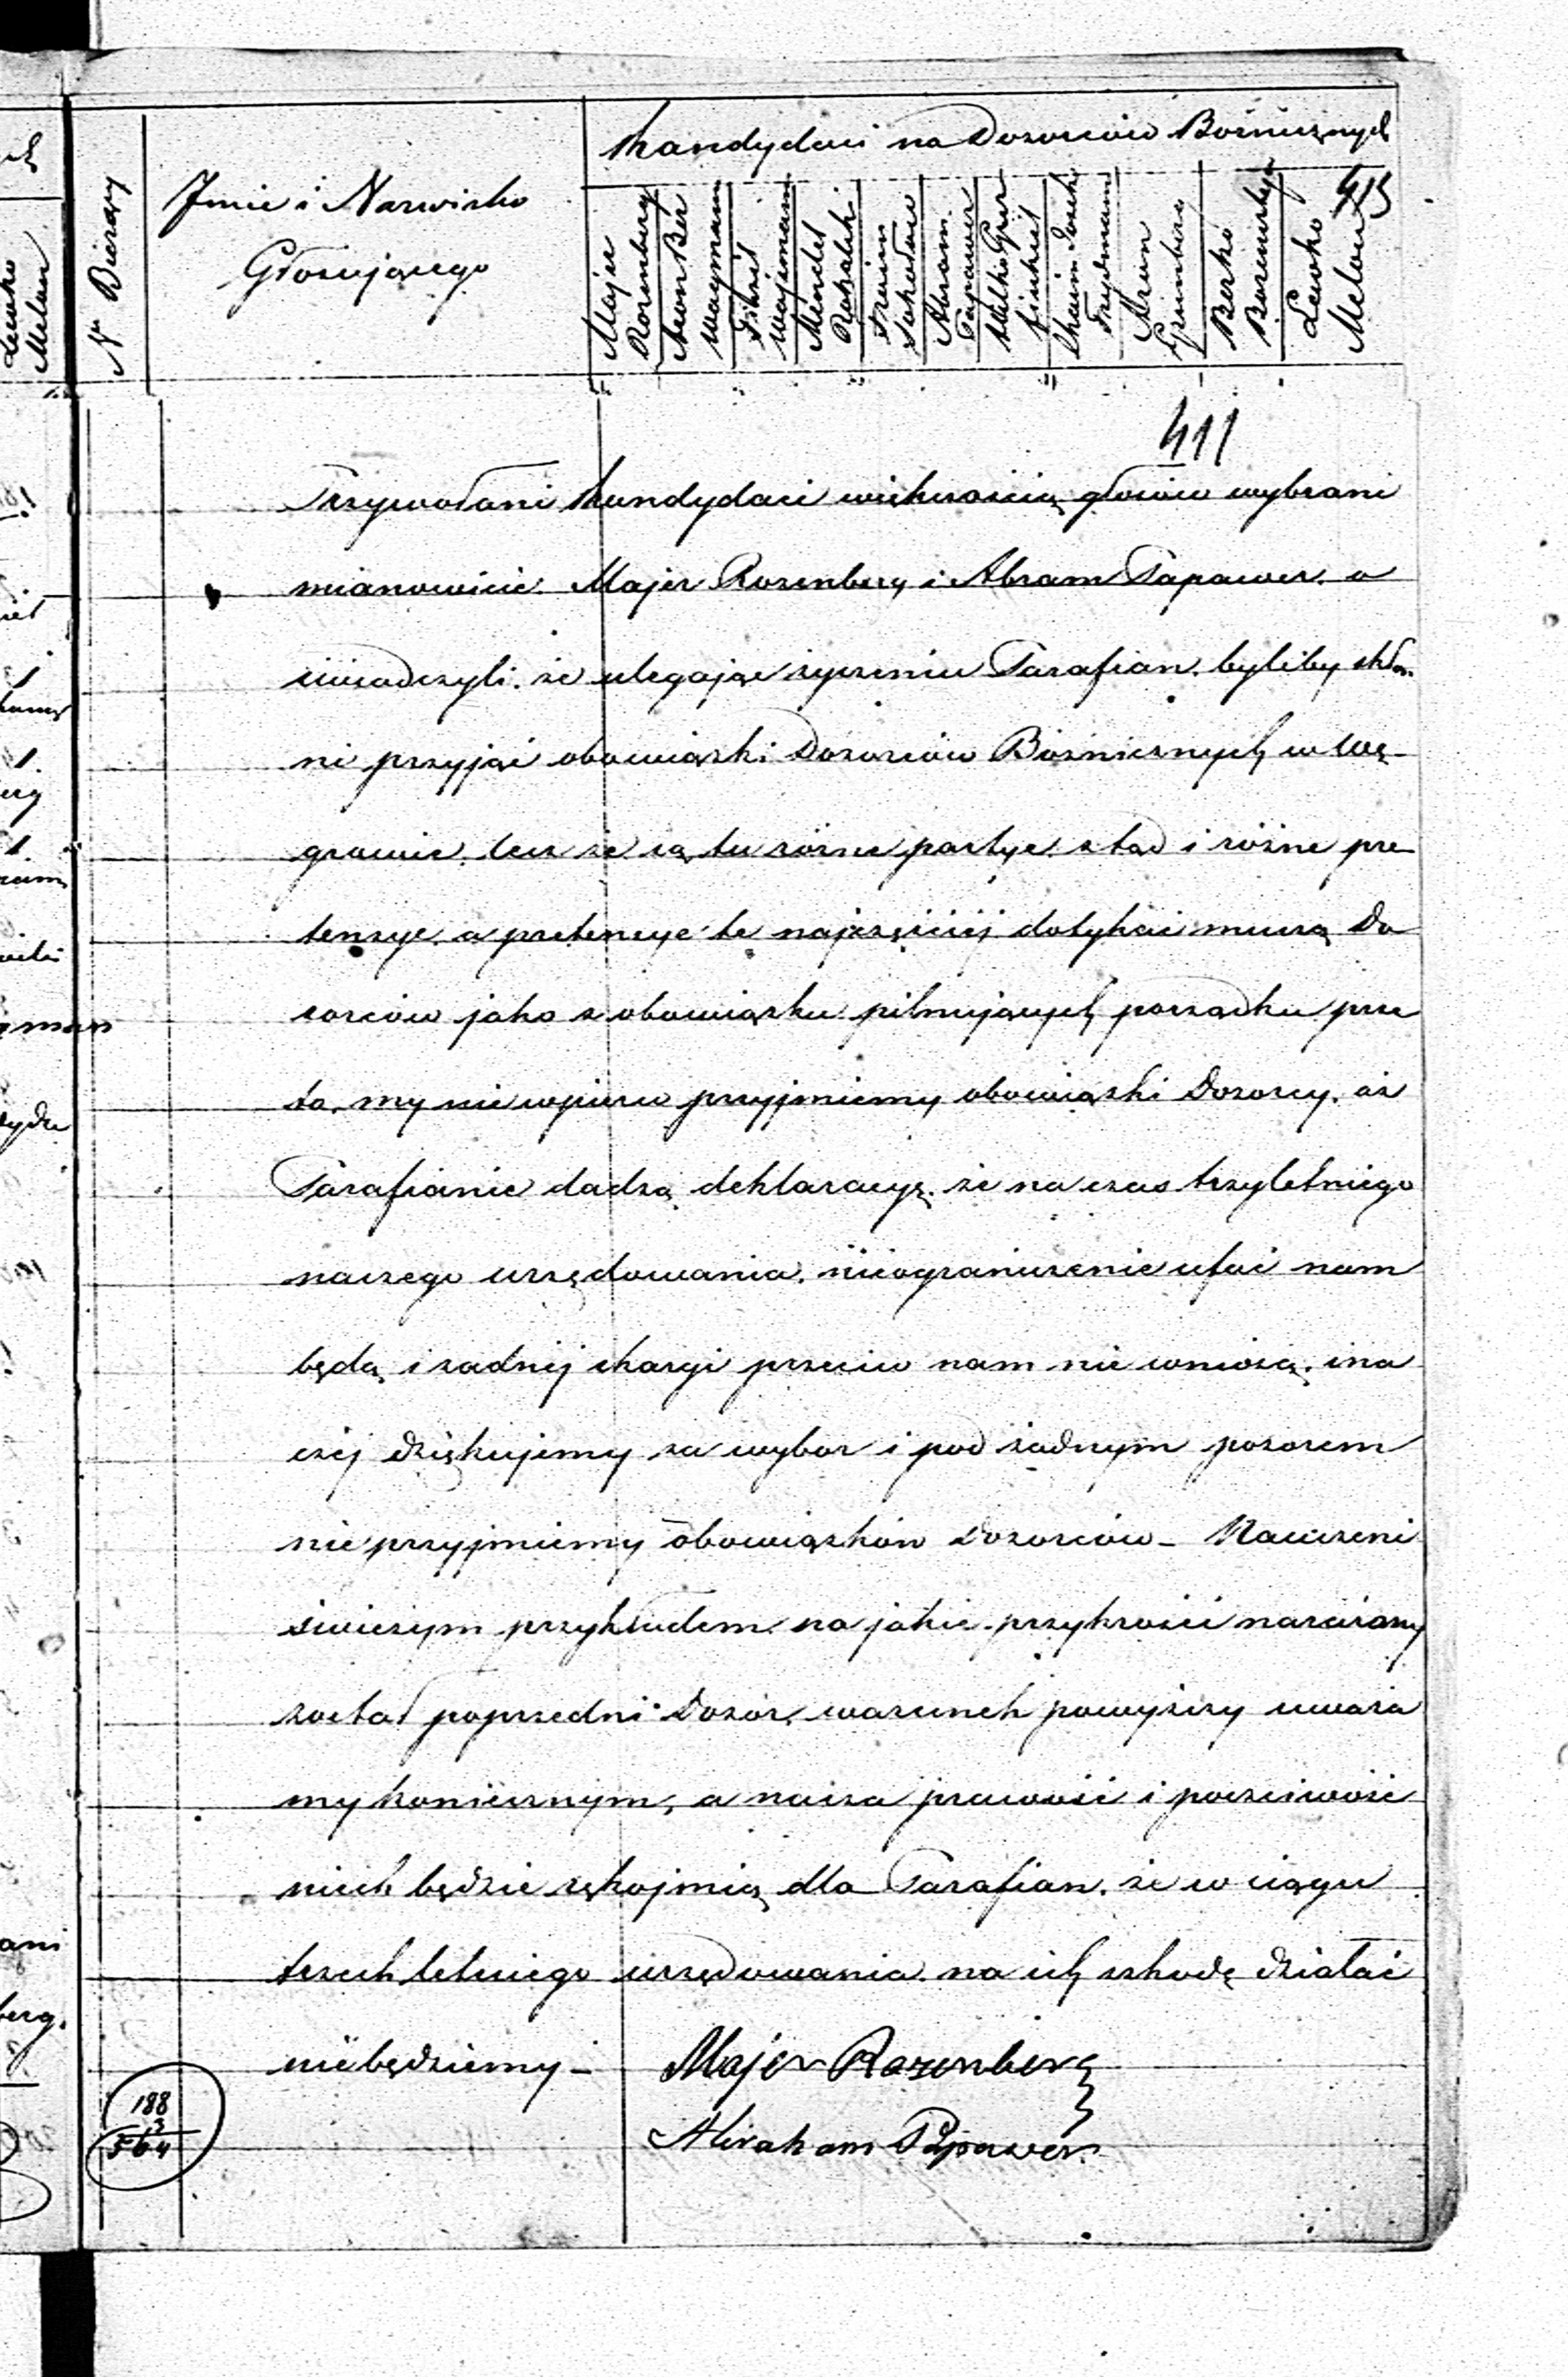 Kandydaci na Dozorców Bóżnicznych
415
N<sup>r</sup> Bieżący
Imie i Nazwisko
Głosującego
Majer Rozenberg
Aron Ber Wajman
Wajsman
Mendel
Froim
Abram Papawer
Chaim Josek Frydman
Aron Grinberg
Berko
Lewko Melon
411
Przywołani Kandydaci większością głosów wybrani
mianowicie Majer Rozenberg i Abram Papawer. o
świadczyli. że ulegając życzeniu Parafian. byliby skłon
ni przyjąć obowiązki Dozorców Bóżnicznych w Wę-
growie. lecz że są tu różne partye. ztąd i różne pre
tensye. a pretensye te najczęściej dotykać muszą Do
zorców jako z obowiązku pilnujących porządku prze
to. my nie wpierw przyjmiemy obowiązki Dozorcy. aż
Parafianie dadzą deklaracyę. że na czas trzyletniego
naszego urzędowania. nieograniczenie ufać nam
będą i żadnej skargi przeciw nam nie wniosą. ina
czej dziękujemy za wybor i pod żadnym pozorem
nie przyjmiemy obowiązków dozorców – Nauczeni
świeżym przykładem na jakie przykrości narażony
został poprzedni Dozór, warunek powyższy uważa
my koniecznym, a nasza prawość i poczciwość
niech będzie rękojmią dla Parafian. że w ciągu
trzech letniego urzędowania na ich szkodę działać
niebędziemy –
Majer Rozenberg
Abraham Papawer
188
3
564